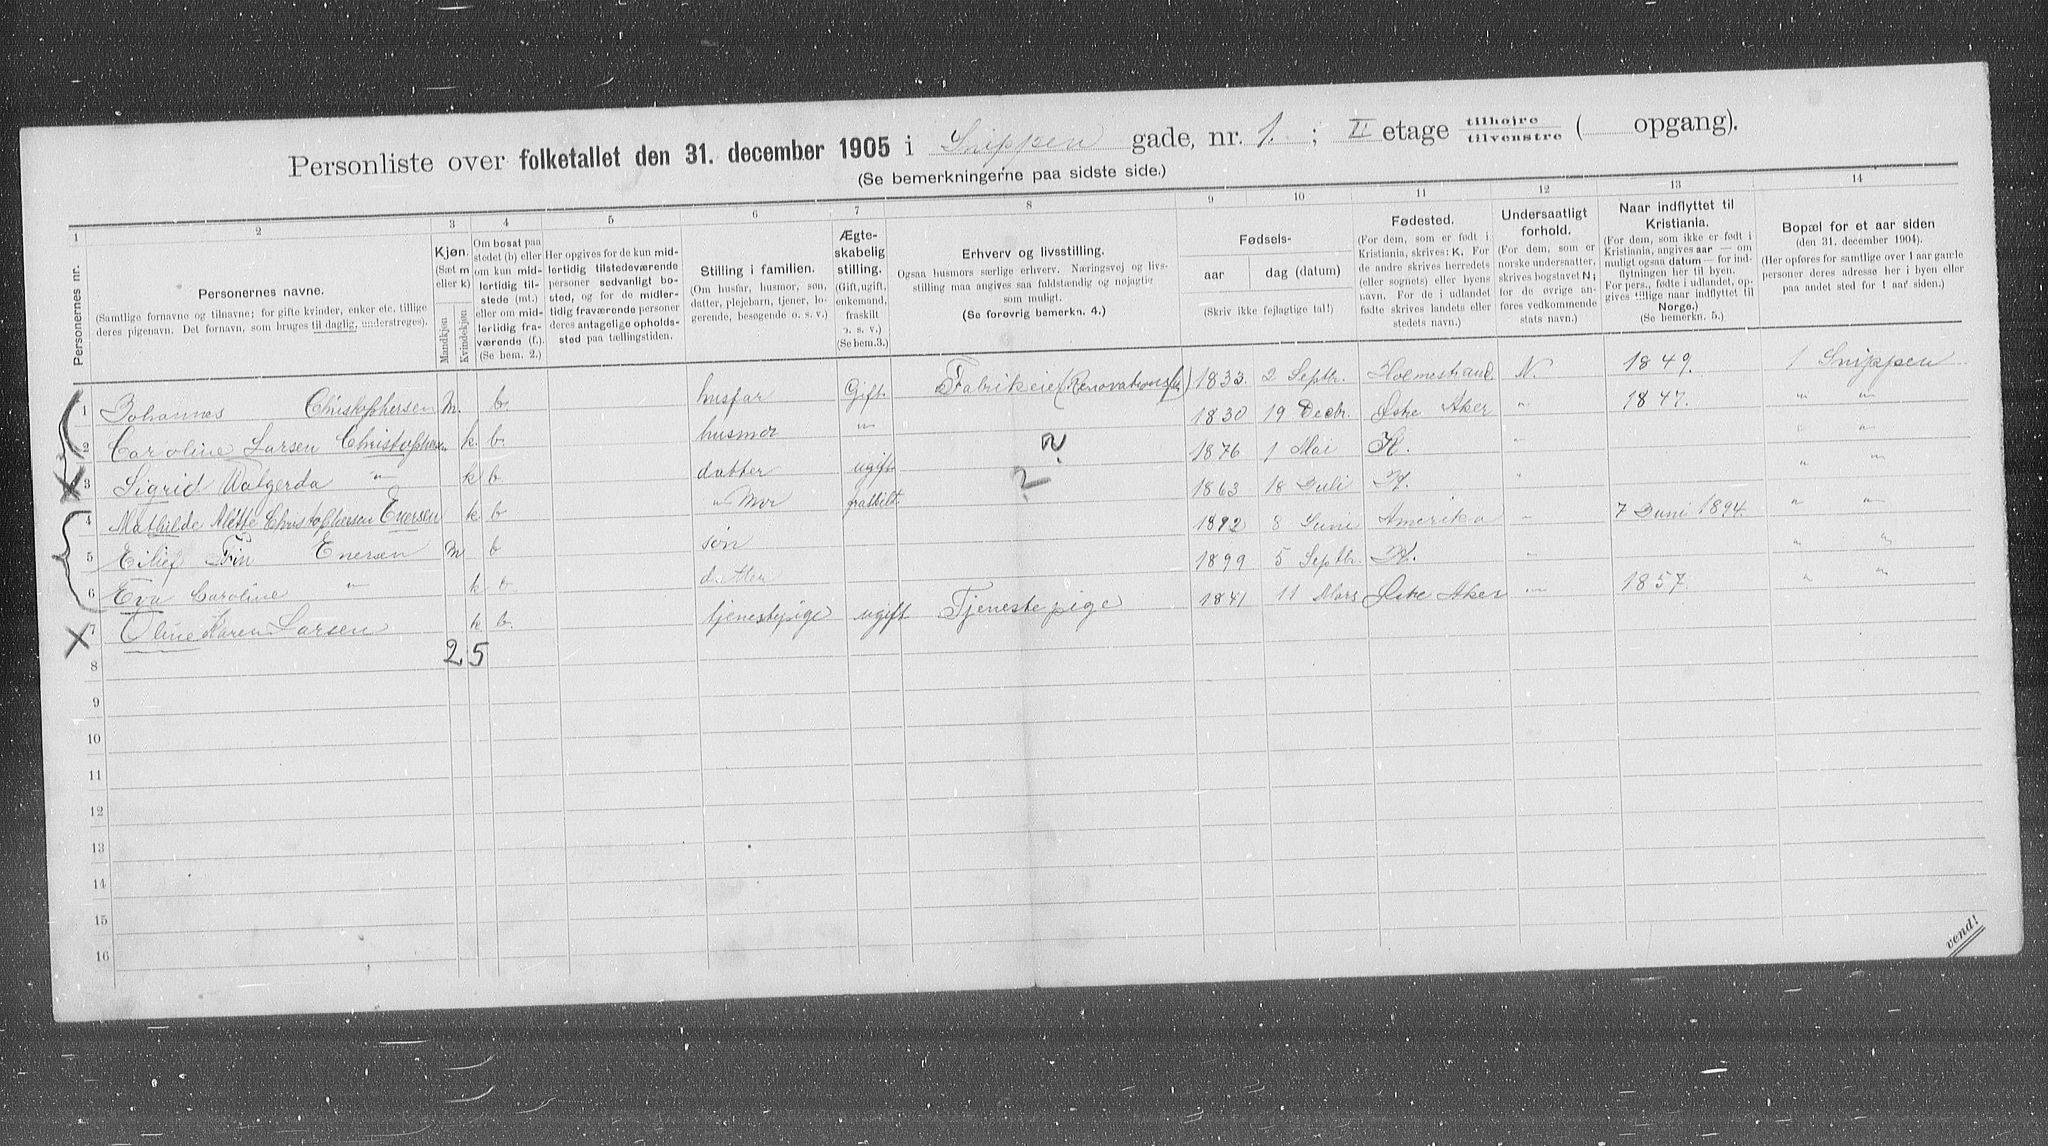 Personliste over folketallet den 31. december 1905 i Snippen gade, nr. 1. ; II etage tilhøjre tilvenstre ( opgang).
(Se bemerkningerne paa sidste side.)
1 2 3 4 5 6 7 8 9 10 11 12 13 14
Personernes nr.
Personernes navne.
(Samtlige fornavne og tilnavne; for gifte kvinder, enker etc. tillige
deres pigenavn. Det fornavn, som bruges til daglig, understreges).
Kjøn.
(Sæt m
eller k)
Mandkjøn
Kvindekjøn
Om bosat paa
stedet (b) eller
om kun mid-
lertidig til-
stede (mt.)
eller om mid-
lertidig fra-
værende (f.).
(Se bem. 2.)
Her opgives for de kun mid-
lertidig tilstedeværende
personer sedvanligt bo-
sted, og for de midler-
tidig fraværende personer
deres antagelige opholds-
sted paa tællingstiden.
Stilling i familien.
(Om husfar, husmor, søn,
datter, plejebarn, tjener, lo-
gerende, besøgende o. s. v.)
Ægte-
skabelig
stilling.
(Gift, ugift,
enkemand,
fraskilt
o. s. v.)
(Se bem. 3.)
Erhverv og livsstilling.
Ogsaa husmors særlige erhverv. Næringsvej og livs-
stilling maa angives saa fuldstændig og nøjagtig
som muligt.
(Se forøvrig bemerkn. 4.)
Fødsels-
aar dag (datum)
(Skriv ikke fejlagtige tal!)
Fødested.
(For dem, som er født i
Kristiania, skrives: K. For
de andre skrives herredets
(eller sognets) eller byens
navn. For de i udlandet
fødte skrives landets eller
stedets navn.)
Undersaatligt
forhold.
(For dem, som er
norske undersaatter,
skrives bogstavet N;
for de øvrige an-
føres vedkommende
stats navn.)
Naar indflyttet til
Kristiania.
(For dem, som ikke er født i
Kristiania, angives aar — om
muligt ogsaa datum — for ind-
flytningen her til byen.
For pers., født i udlandet, op-
gives tillige naar indflyttet til
Norge.)
(Se bemerkn. 5.)
Bopæl for et aar siden
(den 31. december 1904).
(Her opføres for samtlige over 1 aar gamle
personer deres adresse her i byen eller
paa andet sted for 1 aar siden.)
1 Johannes Christophersen M. b. husfar Gift. 1833. 2 Septbr. Holmestrand N. 1849. 1 Snippen
2 Caroline Larsen Christophersen k. b. husmor " 1830 19 Decbr. Østre Aker " 1847. " "
3 Sigrid Walgerda " k b datter ugift ? 1876 1 Mai K. " " "
4 Mathilde Alette Christophersen Enersen k. b " Mor fraskilt ? 1863 18 Juli K. " " "
5 Eilief Fin Enersen M b søn 1892 8 Juni Amerika " 7 Juni 1894. " "
6 Eva Caroline " k b datter 1899 5 Septbr. K. " " "
7 Oline Karen Larsen k b. tjenestepige ugift Tjenestepige 1841 11 Mars Østre Aker " 1857. " "
8 2 5
9
10
11
12
13
14
15
16
vend!